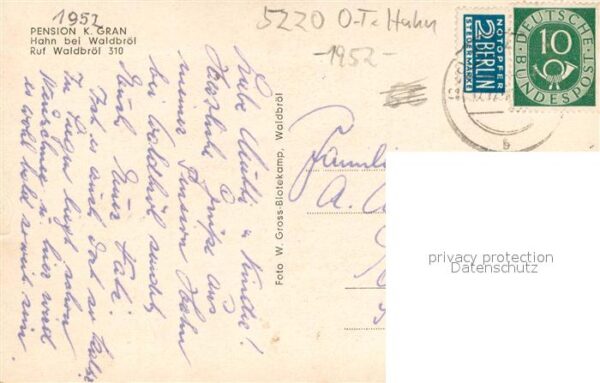 1952
PENSION K. GRAN
Hahn bei Waldbröl
Ruf Waldbröl 310
5220 O.-T. Hahn
-1952-
NOTOPFER
2 BERLIN
STEUERMARKE
DEUTSCHE
10
BUNDESPOST
Liebe Mutti u. Kinder!
Herzliche Grüße aus
meiner Pension Hahn
bei Waldbröl sendet
Euch Euer
Ist es auch dort so kalt?
In liegt schon
u. hier wird
es wohl bald soweit sein.
Foto W. Gross-Blotekamp, Waldbröl
Familie
A.
privacy protection
Datenschutz
b